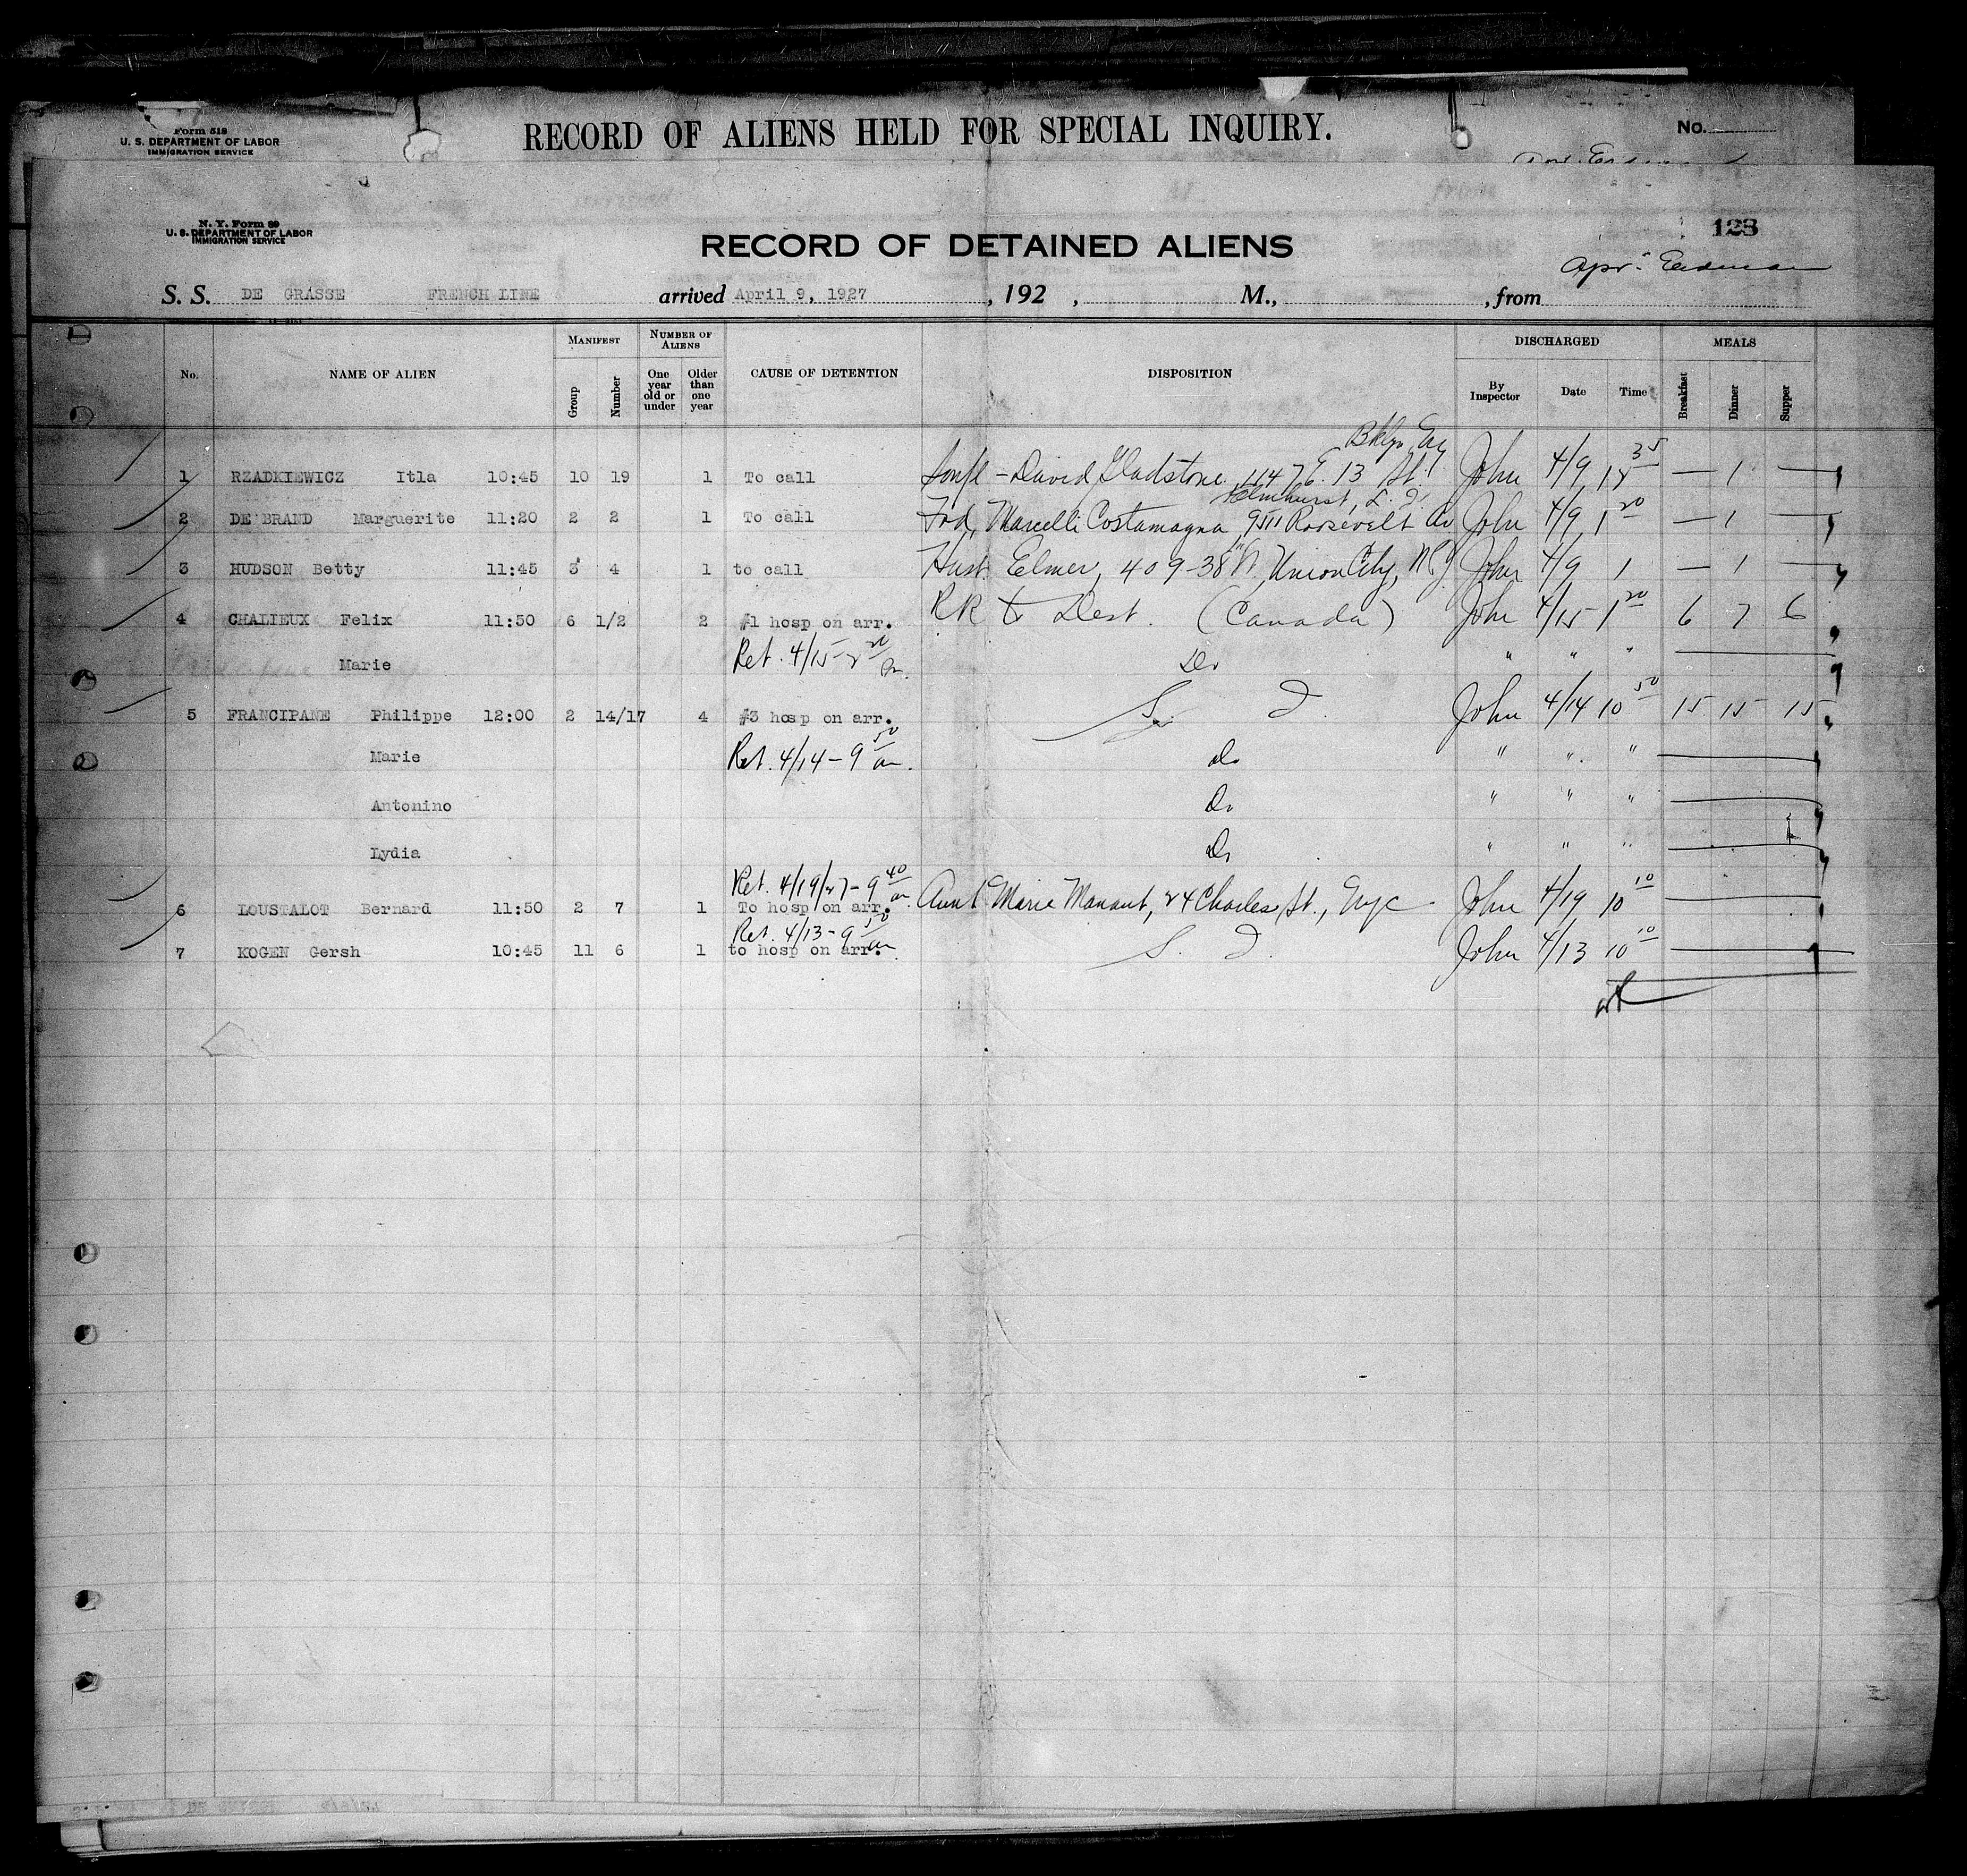 Form 518
U. S. DEPARTMENT OF LABOR
IMMIGRATION SERVICE
RECORD OF ALIENS HELD FOR SPECIAL INQUIRY.
No.
N. Y. Form 89
U. S. DEPARTMENT OF LABOR
IMMIGRATION SERVICE
128
RECORD OF DETAINED ALIENS
S. S. DE GRASSE FRENCH LINE arrived April 9, 1927, 192 , M., , from
No. NAME OF ALIEN MANIFEST Group Number NUMBER OF ALIENS One year old or under Older than one year CAUSE OF DETENTION DISPOSITION DISCHARGED By Inspector Date Time MEALS Breakfast Dinner Supper
Bklyn
1 RZADKIEWICZ Itla 10:45 10 19 1 To call David Gladstone, 1147 E. 13 St. John 4/9 12 35 — 1 —
Elmhurst, L. I.
2 DE BRAND Marguerite 11:20 2 2 1 To call Marcelli Costamagna, 9511 Roosevelt Av John 4/9 1 20 — 1 —
3 HUDSON Betty 11:45 3 4 1 to call Husb. Elmer, 409-38th Union City, NJ John 4/9 1 — 1 —
4 CHALIEUX Felix 11:50 6 1/2 2 #1 hosp on arr. RR to Dest. (Canada) John 4/15 1 20 6 7 6
Marie Ret. 4/15 - Do " " "
5 FRANCIPANE Philippe 12:00 2 14/17 4 #3 hosp on arr. S. I. John 4/14 10 50 15 15 15
Marie Ret. 4/14 - 9 50 am. Do " " "
Antonino Do " " "
Lydia Do " " "
Ret. 4/19/27 - 9 40 am.
6 LOUSTALOT Bernard 11:50 2 7 1 To hosp on arr. Aunt Marie Manaut, 24 Charles St., Nyc John 4/19 10 10
Ret. 4/13 - 9 50 am
7 KOGEN Gersh 10:45 11 6 1 to hosp on arr. S. I. John 4/13 10 10